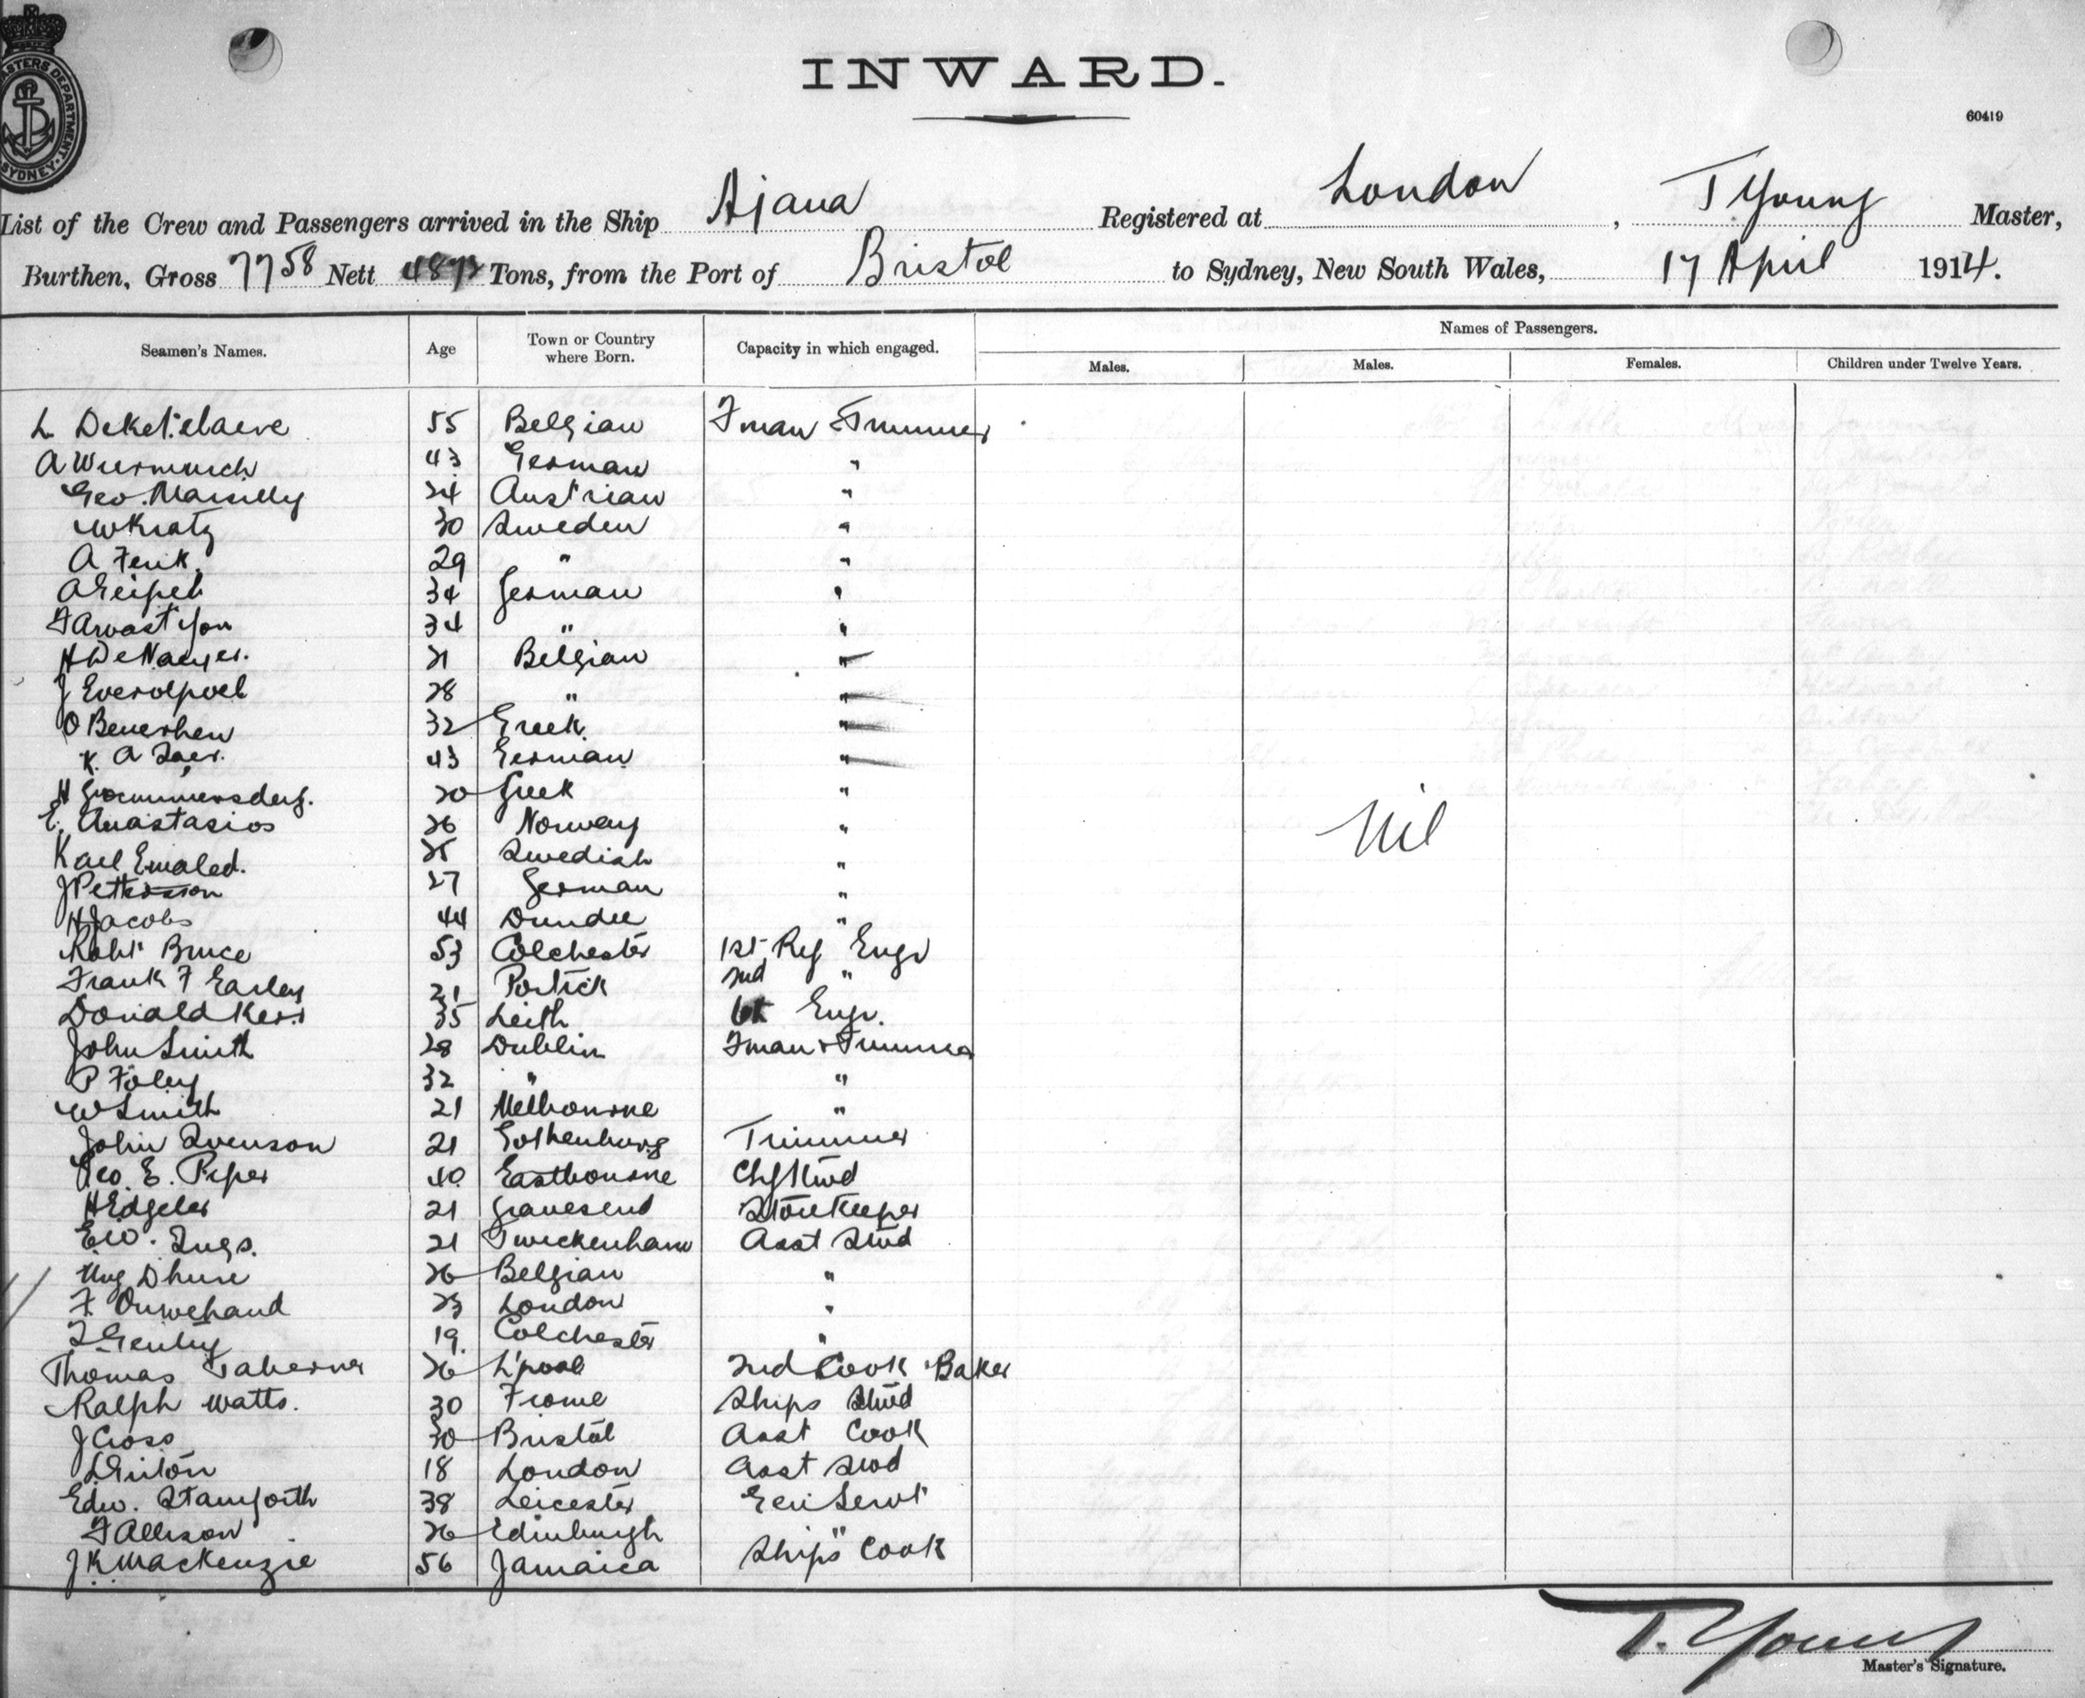 MASTERS DEPARTMENT SYDNEY
INWARD.
60419
List of the Crew and Passengers arrived in the Ship Ajana Registered at London, T Young Master,
Burthen, Gross 7758 Nett Tons, from the Port of Bristol to Sydney, New South Wales, 17 April 1914.
Names of Passengers.
Seamen's Names. Age Town or Country where Born. Capacity in which engaged. Males. Males. Females. Children under Twelve Years.
L 55 Belgian Fman & Trimmer
A 43 German "
Geo. 24 Austrian "
W Kratz 30 Sweden "
A 29 " "
A Geipel 34 German "
34 " "
H De Naeyer. 21 Belgian "
J 28 " "
O 32 Greek "
K. A 43 German "
H 20 Greek "
E. Anastasios 26 Norway "
Karl 25 Swedish "
J Pettersson 27 German "
H Jacobs 44 Dundee "
Robt Bruce 53 Colchester 1st Rfg Engr
Frank F Earley 21 Partick 2nd "
Donald Kerr 35 Leith Engr.
John Smith 28 Dublin Fman & Trimmer
P Foley 32 " "
W Smith 21 Melbourne "
John Svenson 21 Gothenburg Trimmer
Geo. E. Piper 40 Eastbourne Chf Stwd
H Edgeler 21 Gravesend Storekeeper
E. W. 21 Twickenham Asst Stwd
26 Belgian "
F. Ouwehand 23 London "
19 Colchester "
Thomas Taberner 26 L'pool 2nd Cook & Baker
Ralph Watts. 30 Frome Ships Stwd
J Cross 30 Bristol Asst Cook
18 London Asst Stwd
Edw. Stamforth 38 Leicester Gen Servt
F Allison 26 Edinburgh "
J K Mackenzie 56 Jamaica Ships Cook
Nil
T. Young
Master's Signature.